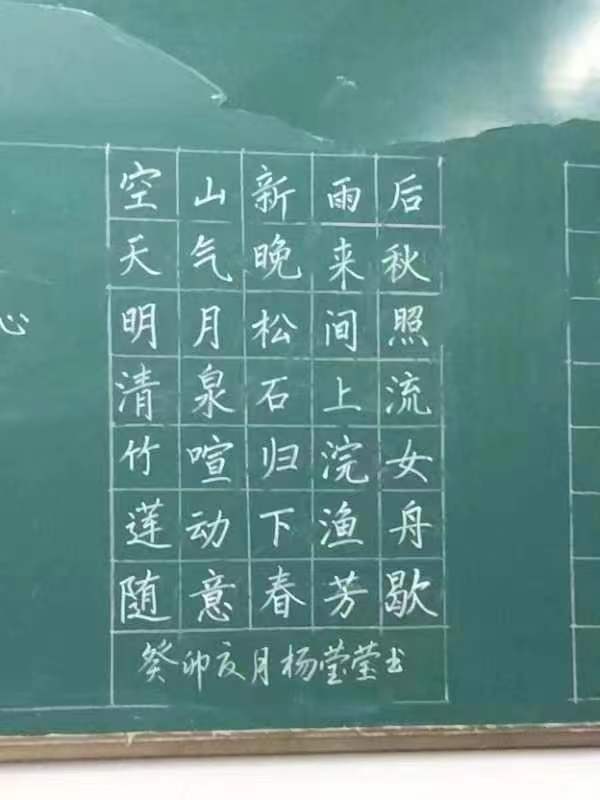 心
空山新雨后
天气晚来秋
明月松间照
清泉石上流
竹喧归浣女
莲动下渔舟
随意春芳歇
癸卯亥月杨莹莹书